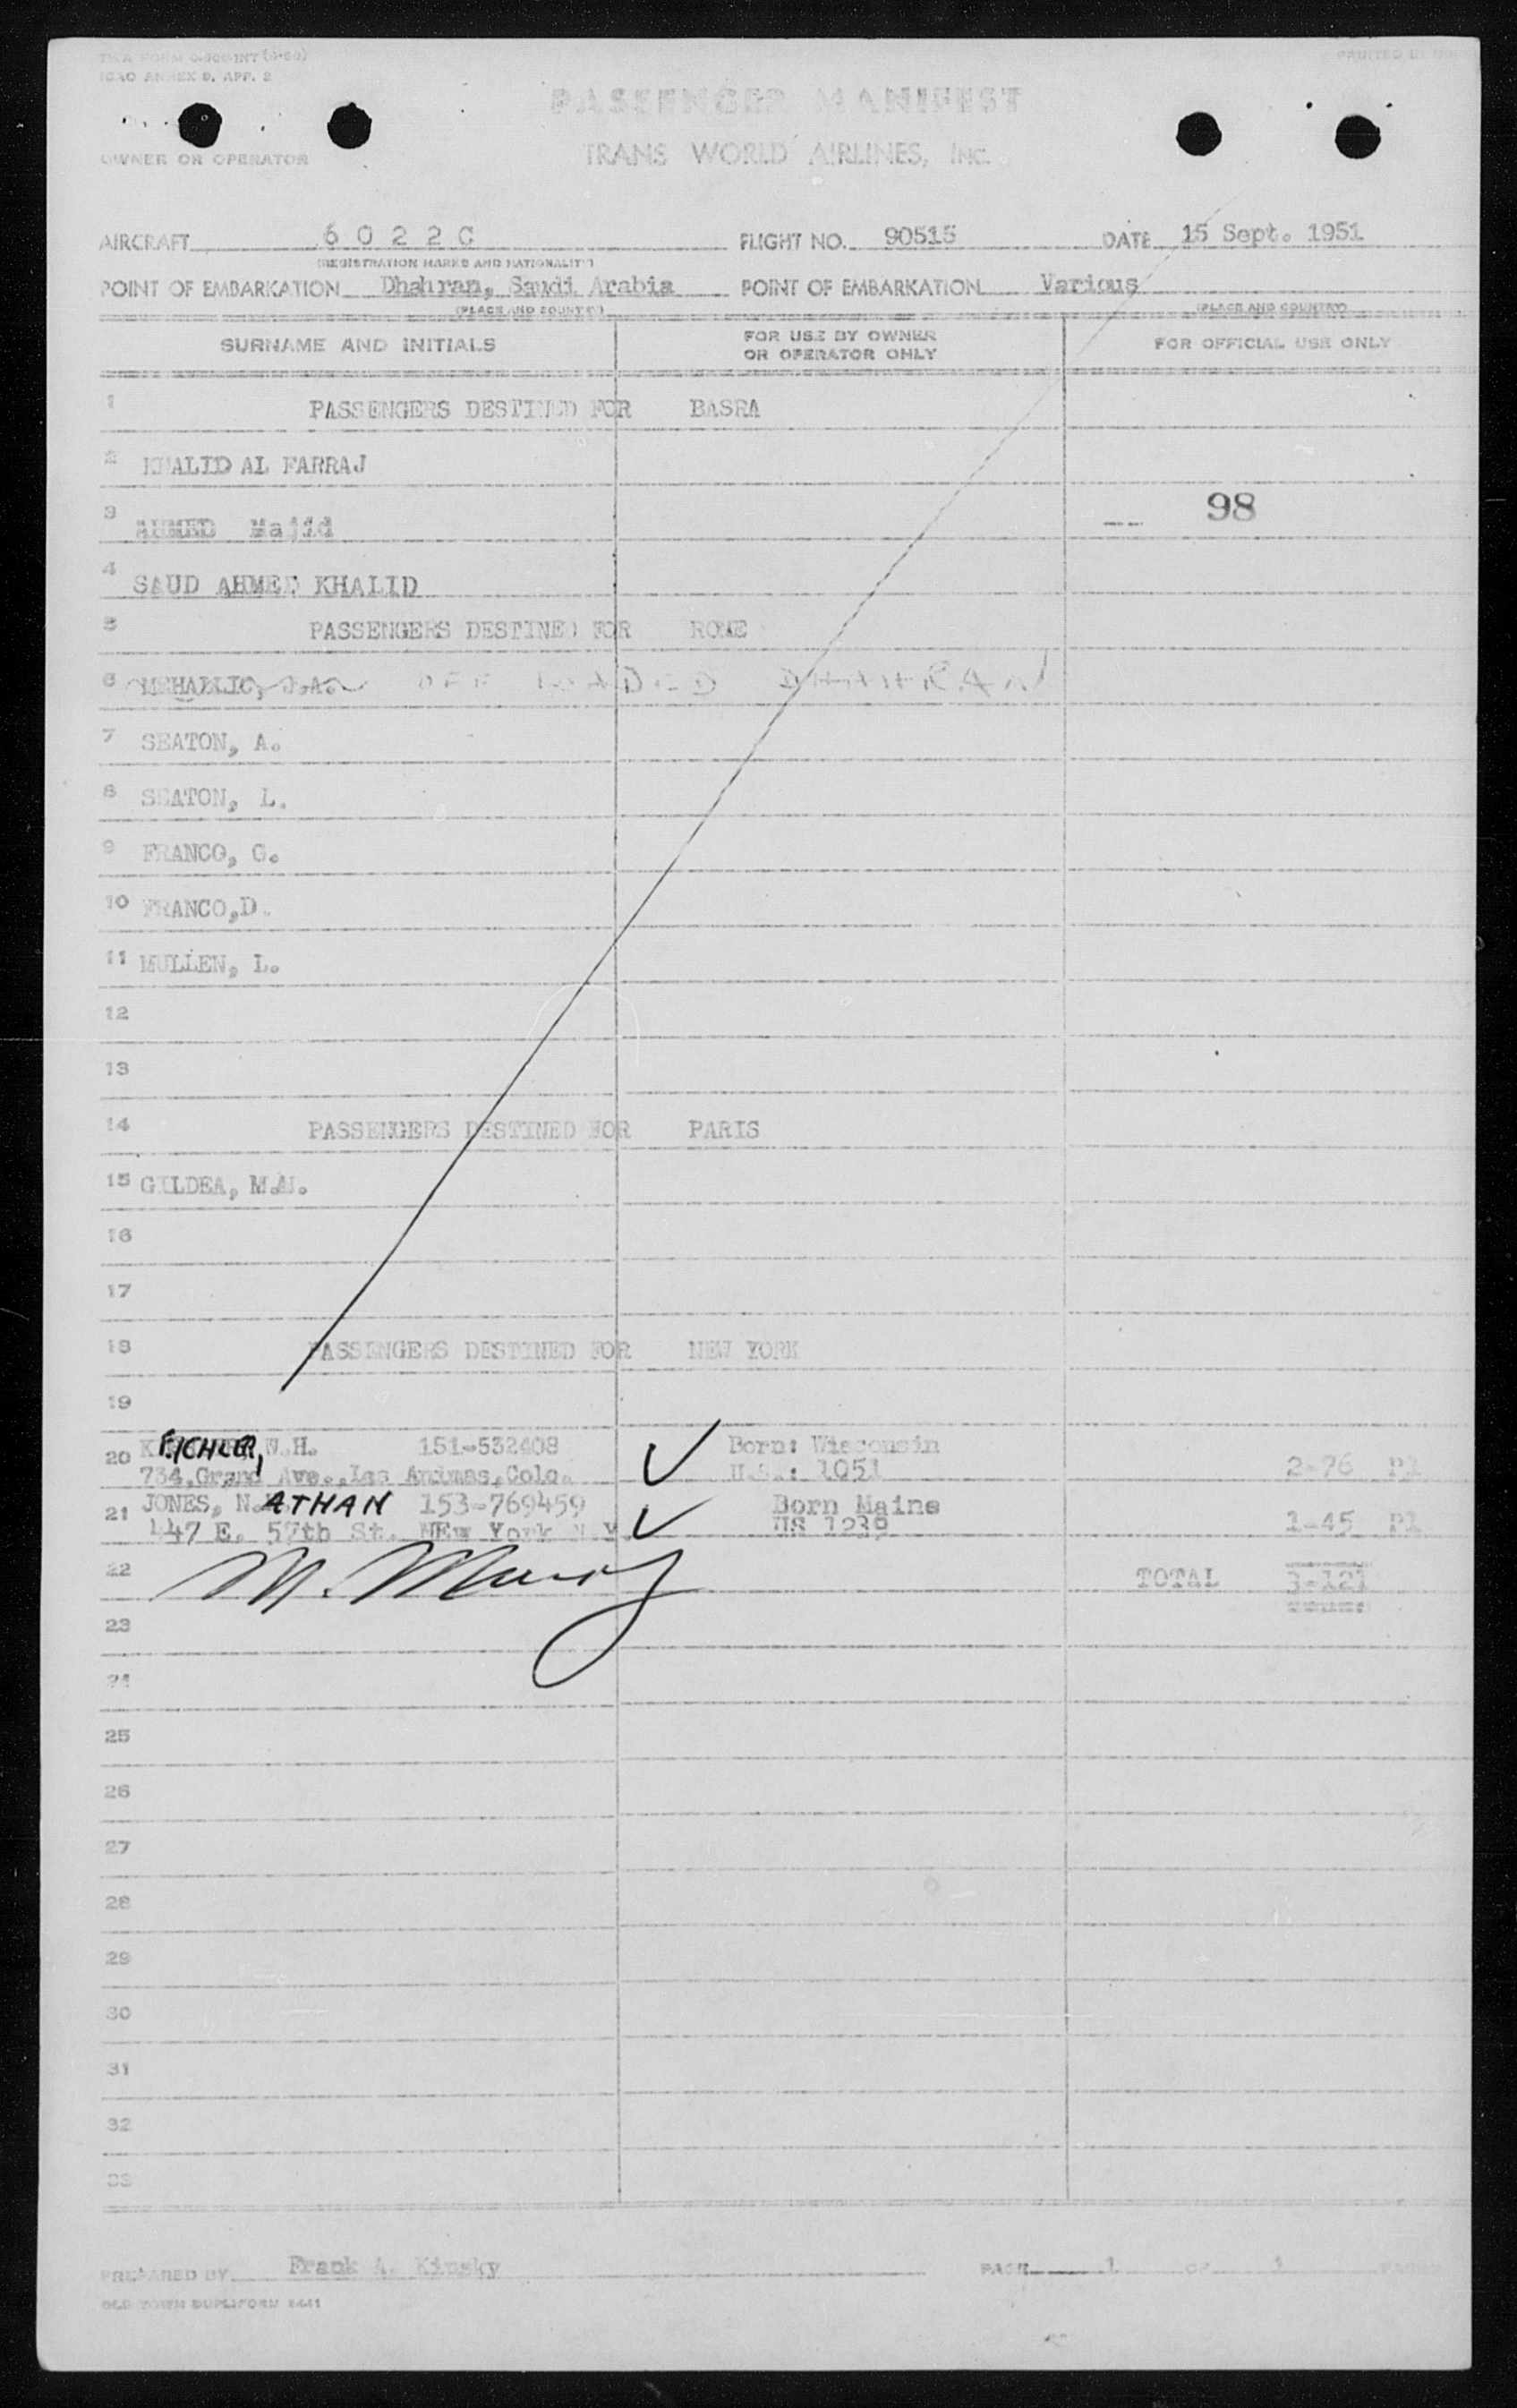 TWA FORM
ICAO ANNEX 9, APP. 2
PASSENGER MANIFEST
OWNER OR OPERATOR
TRANS WORLD AIRLINES, INC.
AIRCRAFT 6022C FLIGHT NO. 90515 DATE 15 Sept. 1951
(REGISTRATION MARKS AND NATIONALITY)
POINT OF EMBARKATION Dhahran, Saudi Arabia POINT OF EMBARKATION Various
(PLACE AND COUNTRY) (PLACE AND COUNTRY)
SURNAME AND INITIALS FOR USE BY OWNER OR OPERATOR ONLY FOR OFFICIAL USE ONLY
1 PASSENGERS DESTINED FOR BASRA
2 KHALID AL FARRAJ
98
3 AHMED Majid
4 SAUD AHMED KHALID
5 PASSENGERS DESTINED FOR ROME
6 J.A. OFF LOADED DHAHRAN
7 SEATON, A.
8 SEATON, L.
9 FRANCO, G.
10 FRANCO,D.
11 MULLEN, L.
12
13
14 PASSENGERS DESTINED FOR PARIS
15 GILDEA, M.
16
17
18 PASSENGERS DESTINED FOR NEW YORK
19
20 EICHLER, W.H. 151-532408 Born: Wisconsin
734,Grand Ave.,Las Animas,Colo. 1051 2-76 Pl
21 JONES, N.ATHAN 153-769459 Born Maine
447 E. 57th St. NEw York N Y. US 1239 1-45 Pl
22 TOTAL 3-121
23
24
25
26
27
28
29
30
31
32
33
PREPARED BY Frank A. Kinsky PAGE 1 OF 1 PAGES
OLD TOWN DUPLIFORM